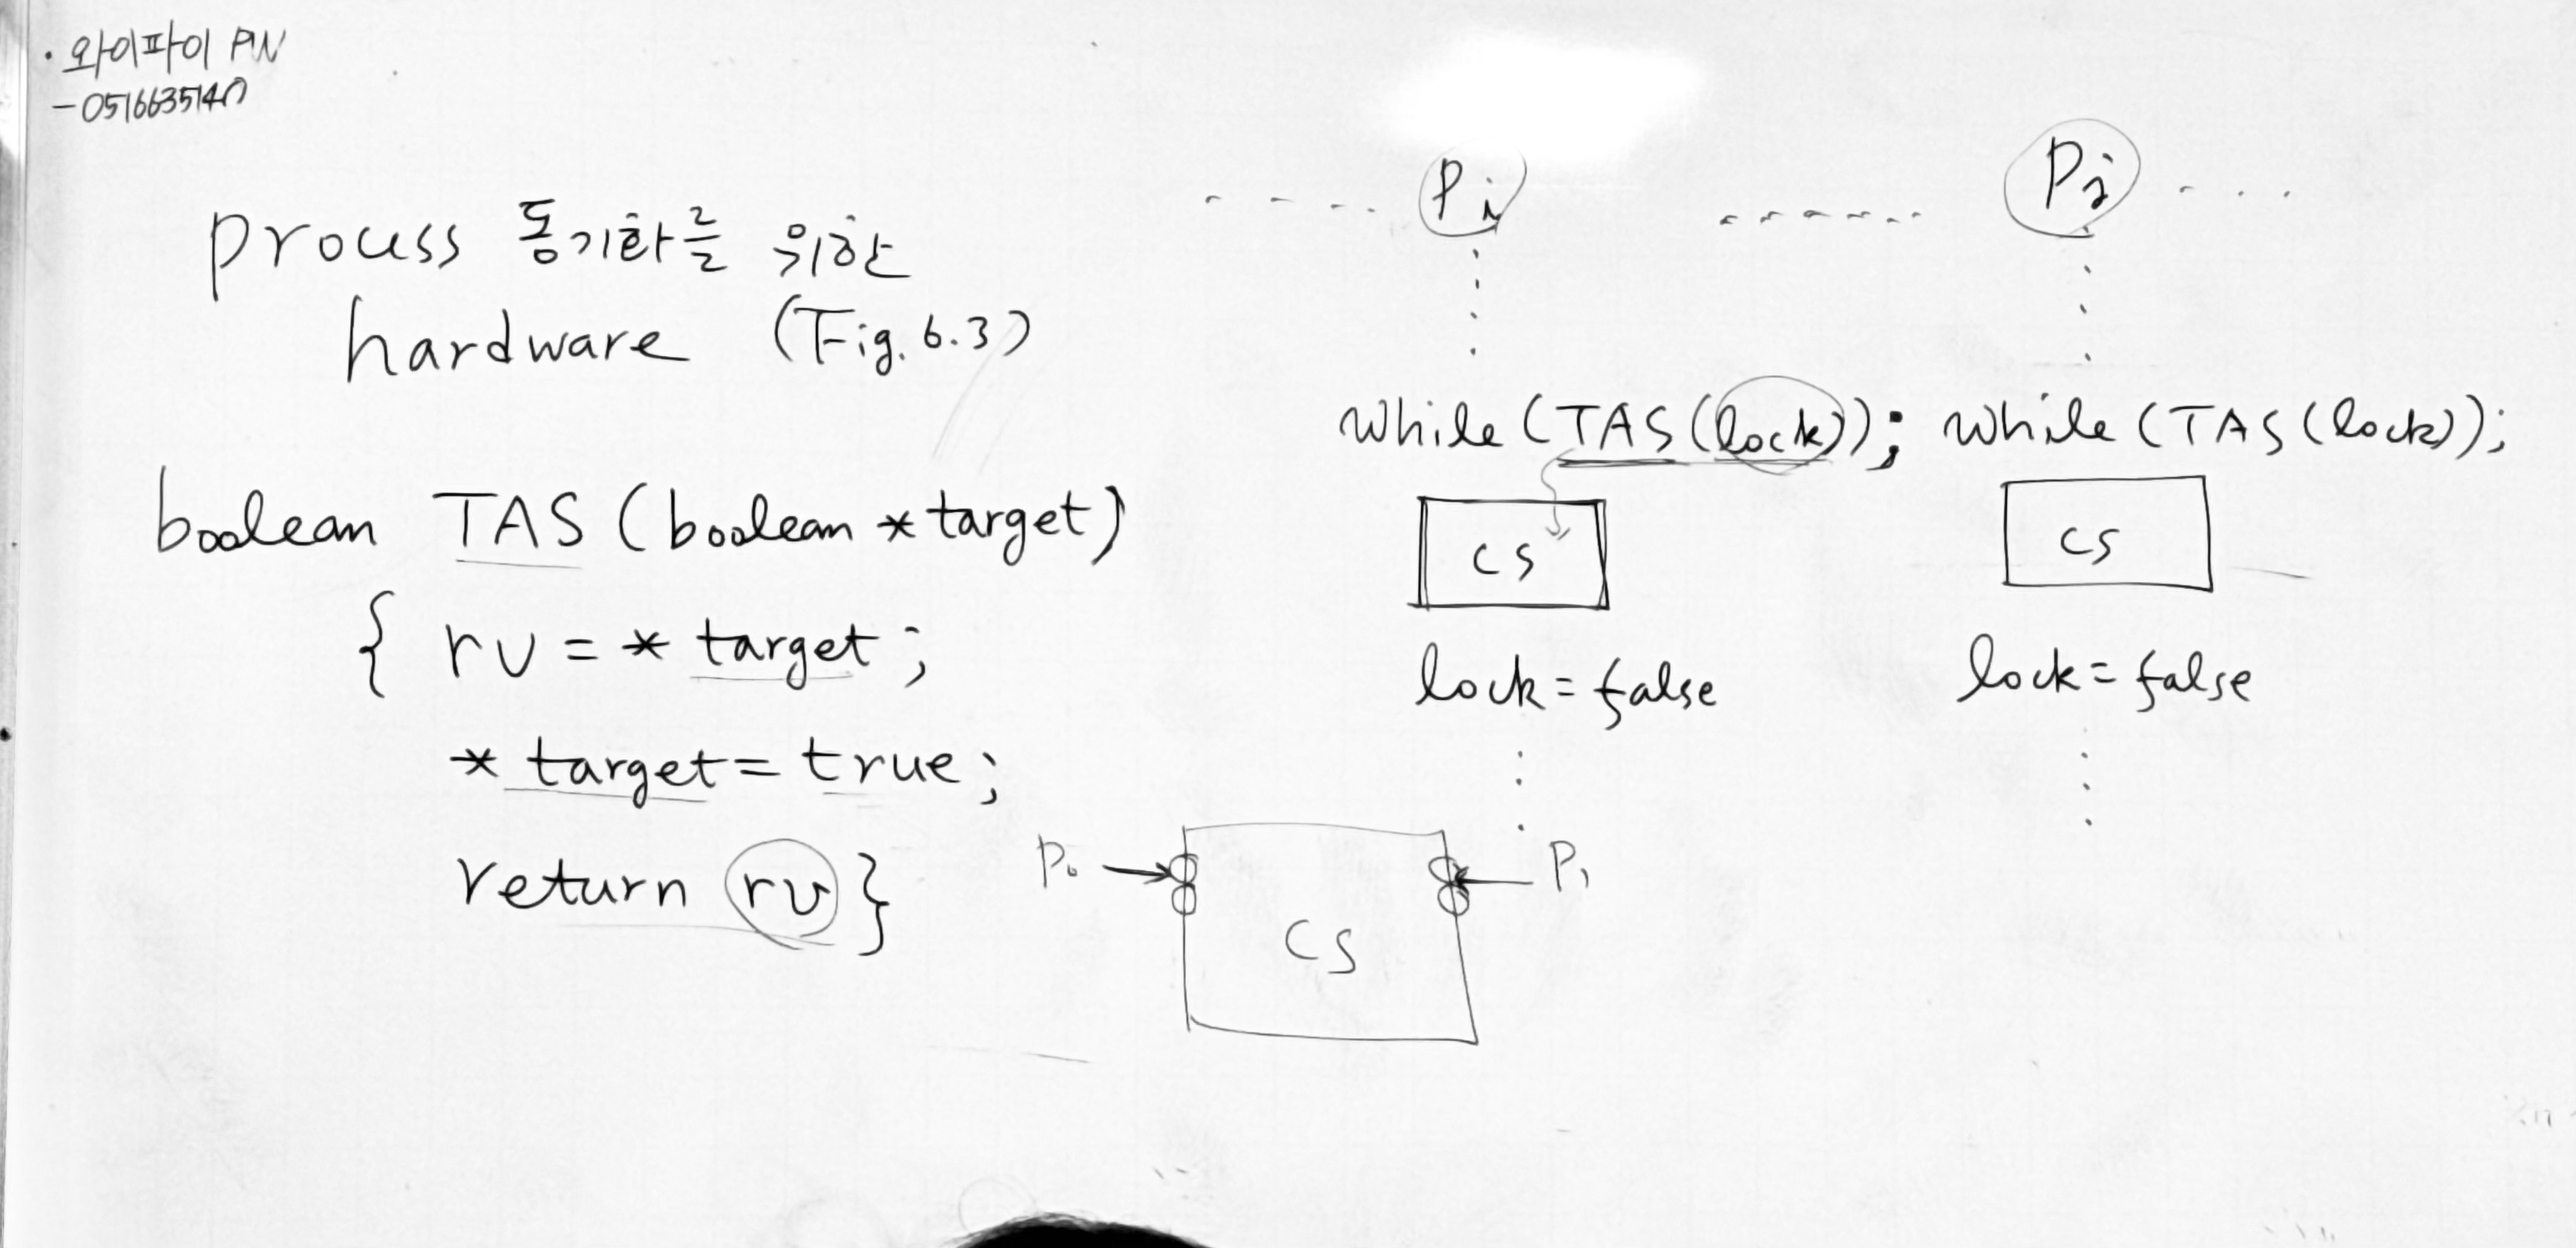 · 와이파이 PW
process 동기화를 위한
hardware (Fig. 6.3)
boolean TAS (boolean *target)
{ rv = * target ;
* target = true ;
return rv }
Pi
while (TAS (lock)) ;
CS
lock = false
Pj
while (TAS (lock)) ;
CS
lock = false
P0
CS
P1